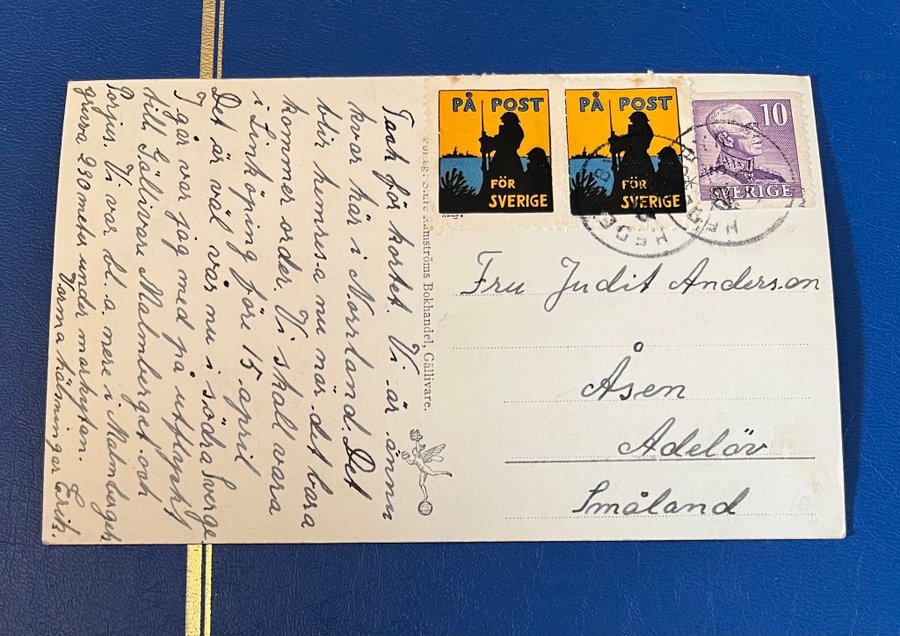 Tack för kortet. Vi är ännu
kvar här i Norrland. Det
blir hemresa nu när det bara
kommer order. Vi skall vara
i Linköping före 15 april
Det är väl vår nu i södra Sverge
I går var jag med på utflykt
till Gällivare Malmberget och
Porjus. Vi var bl. a. nere i Malmbergets
gruva 230 meter under markytan.
Varma hälsningar Erik.
Förlag: Sture Ramströms Bokhandel, Gällivare.
PÅ POST
FÖR
SVERIGE
PÅ POST
FÖR
SVERIGE
10
SVERIGE
Fru Judit Anderson
Åsen
Adelöv
Småland